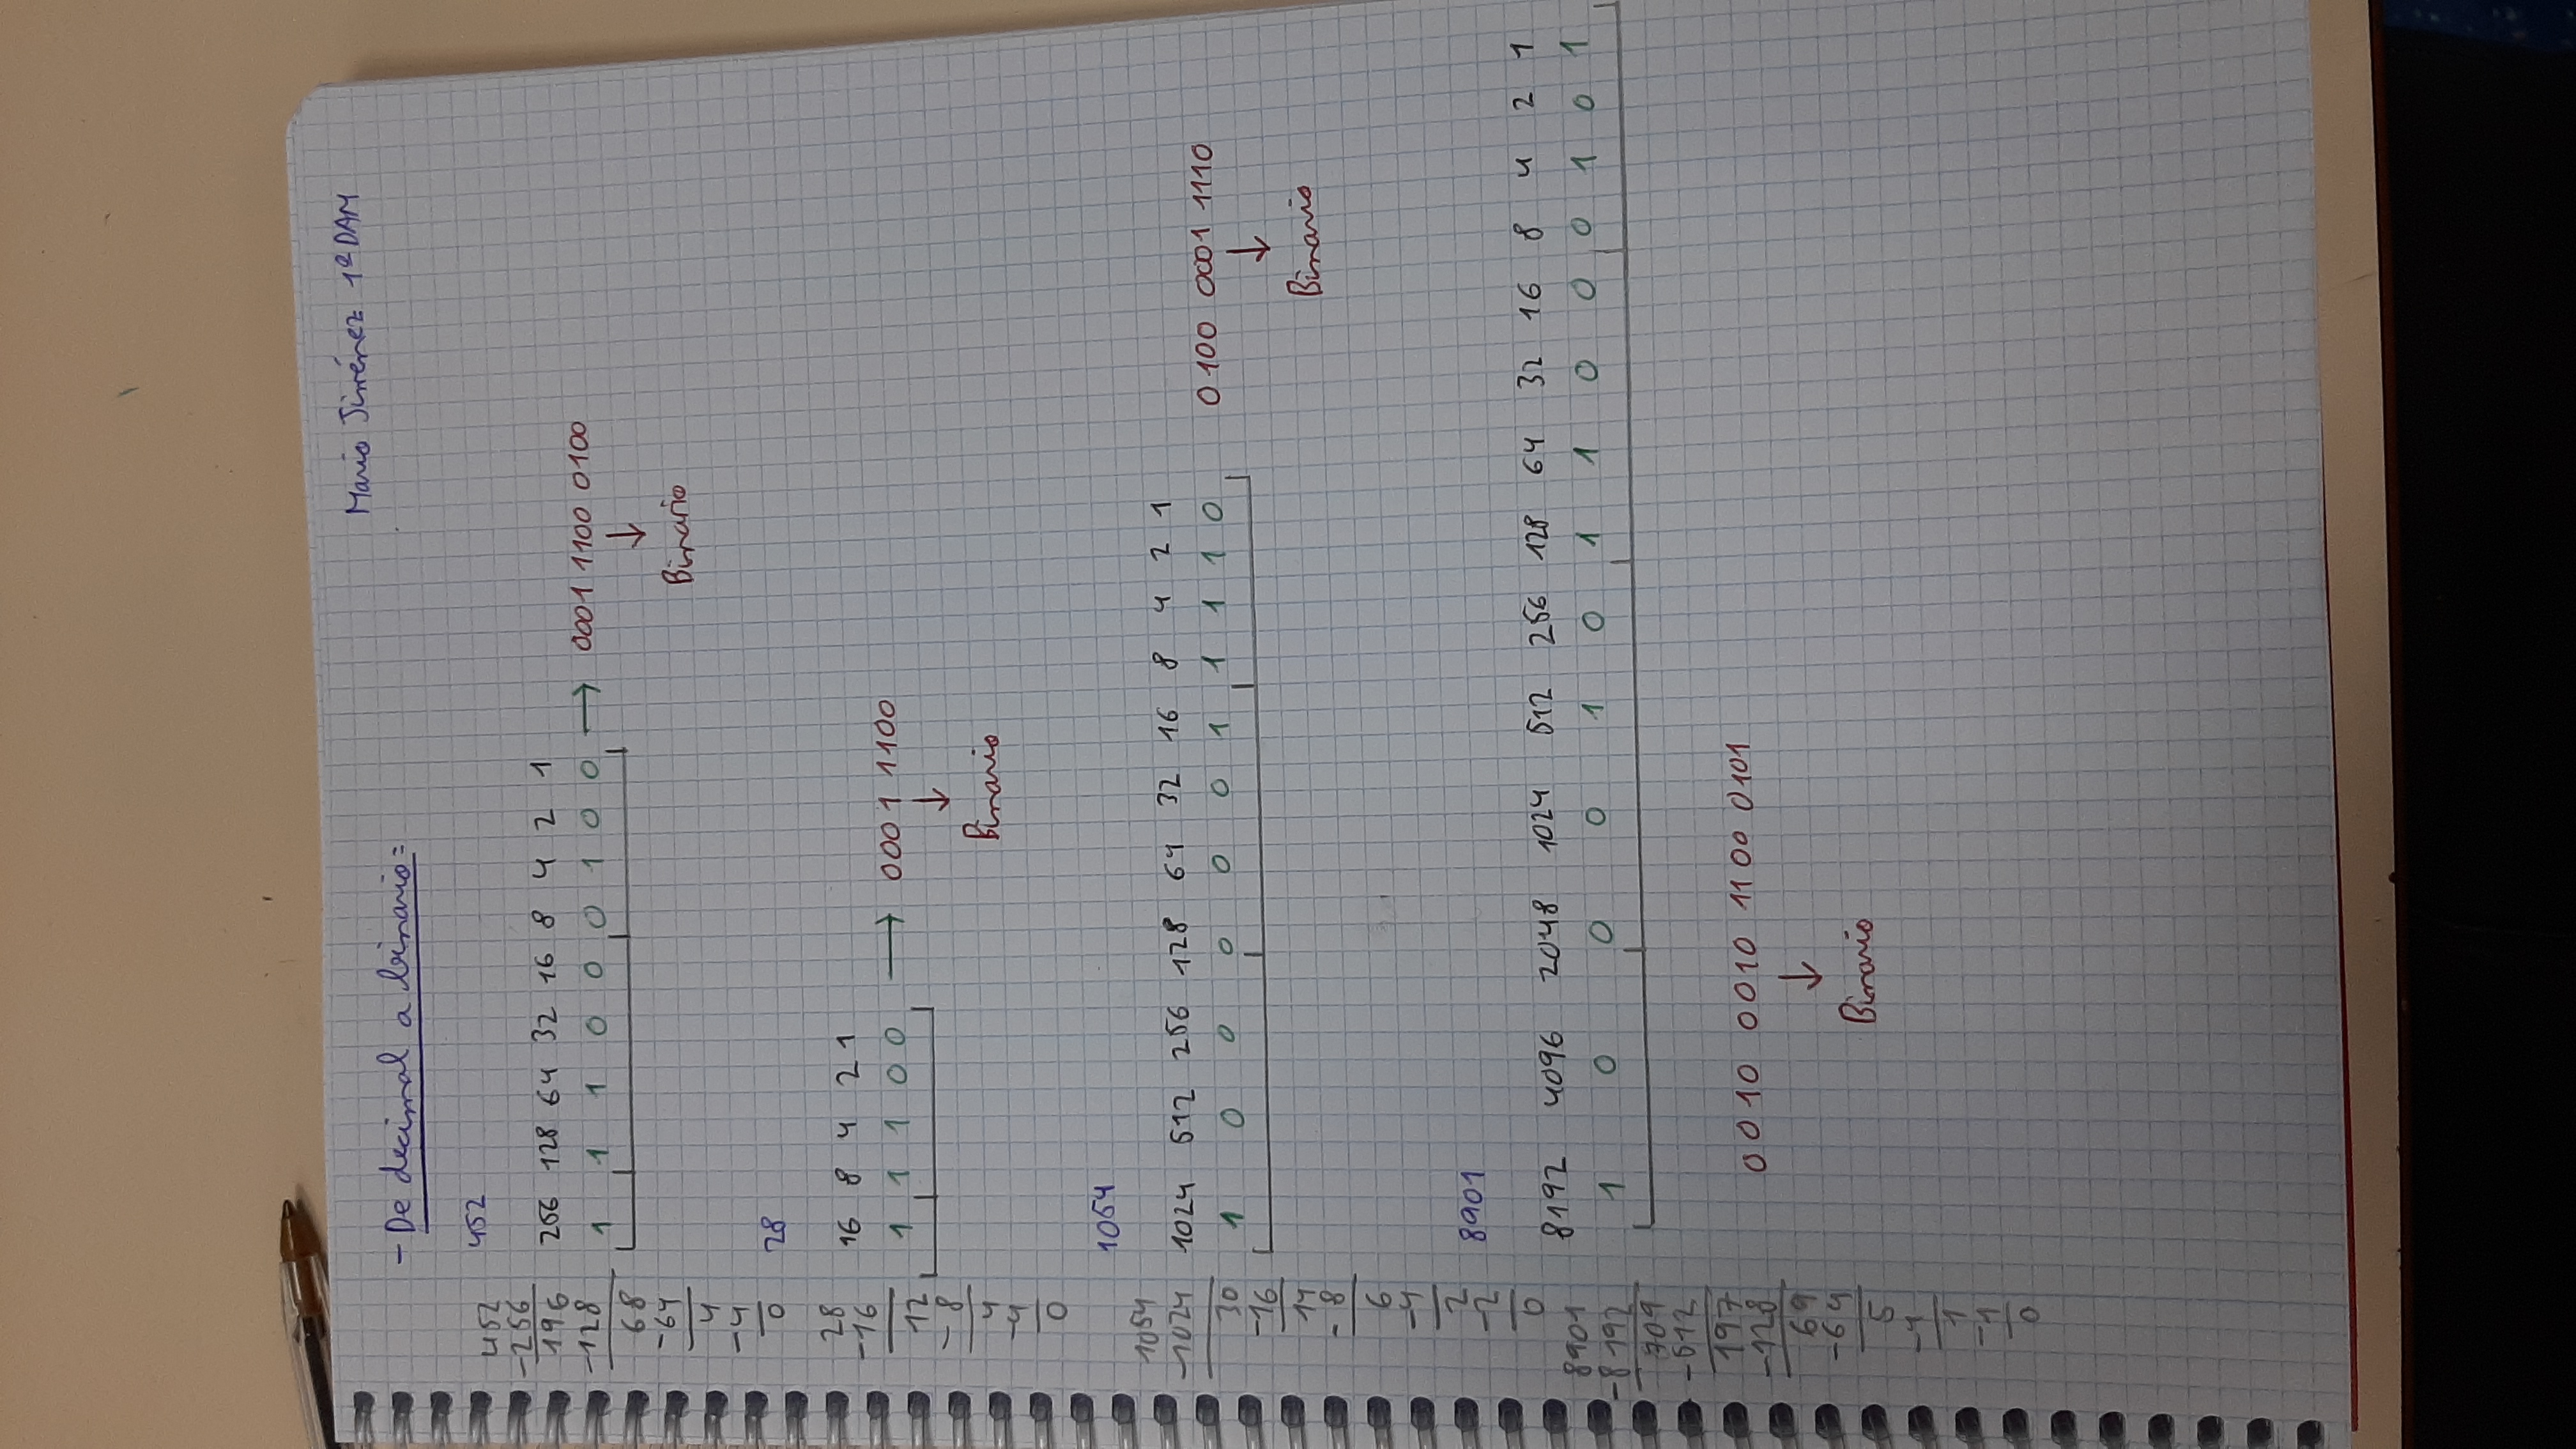 Mario Jiménez 1ºDAM
- De decimal a binario:
452
452
-256
196
-128
68
-64
4
-4
0
256 128 64 32 16 8 4 2 1
1 1 1 0 0 0 1 0 0 → 0001 1100 0100
↓
Binario
28
28
-16
12
-8
4
-4
0
16 8 4 2 1
1 1 1 0 0 → 0001 1100
↓
Binario
1054
1054
-1024
30
-16
14
-8
6
-4
2
-2
0
1024 512 256 128 64 32 16 8 4 2 1
1 0 0 0 0 0 1 1 1 1 0 0100 0001 1110
↓
Binario
8901
8901
-8192
709
-512
197
-128
69
-64
5
-4
1
-1
0
8192 4096 2048 1024 512 256 128 64 32 16 8 4 2 1
1 0 0 0 1 0 1 1 0 0 0 1 0 1
0010 0010 1100 0101
↓
Binario